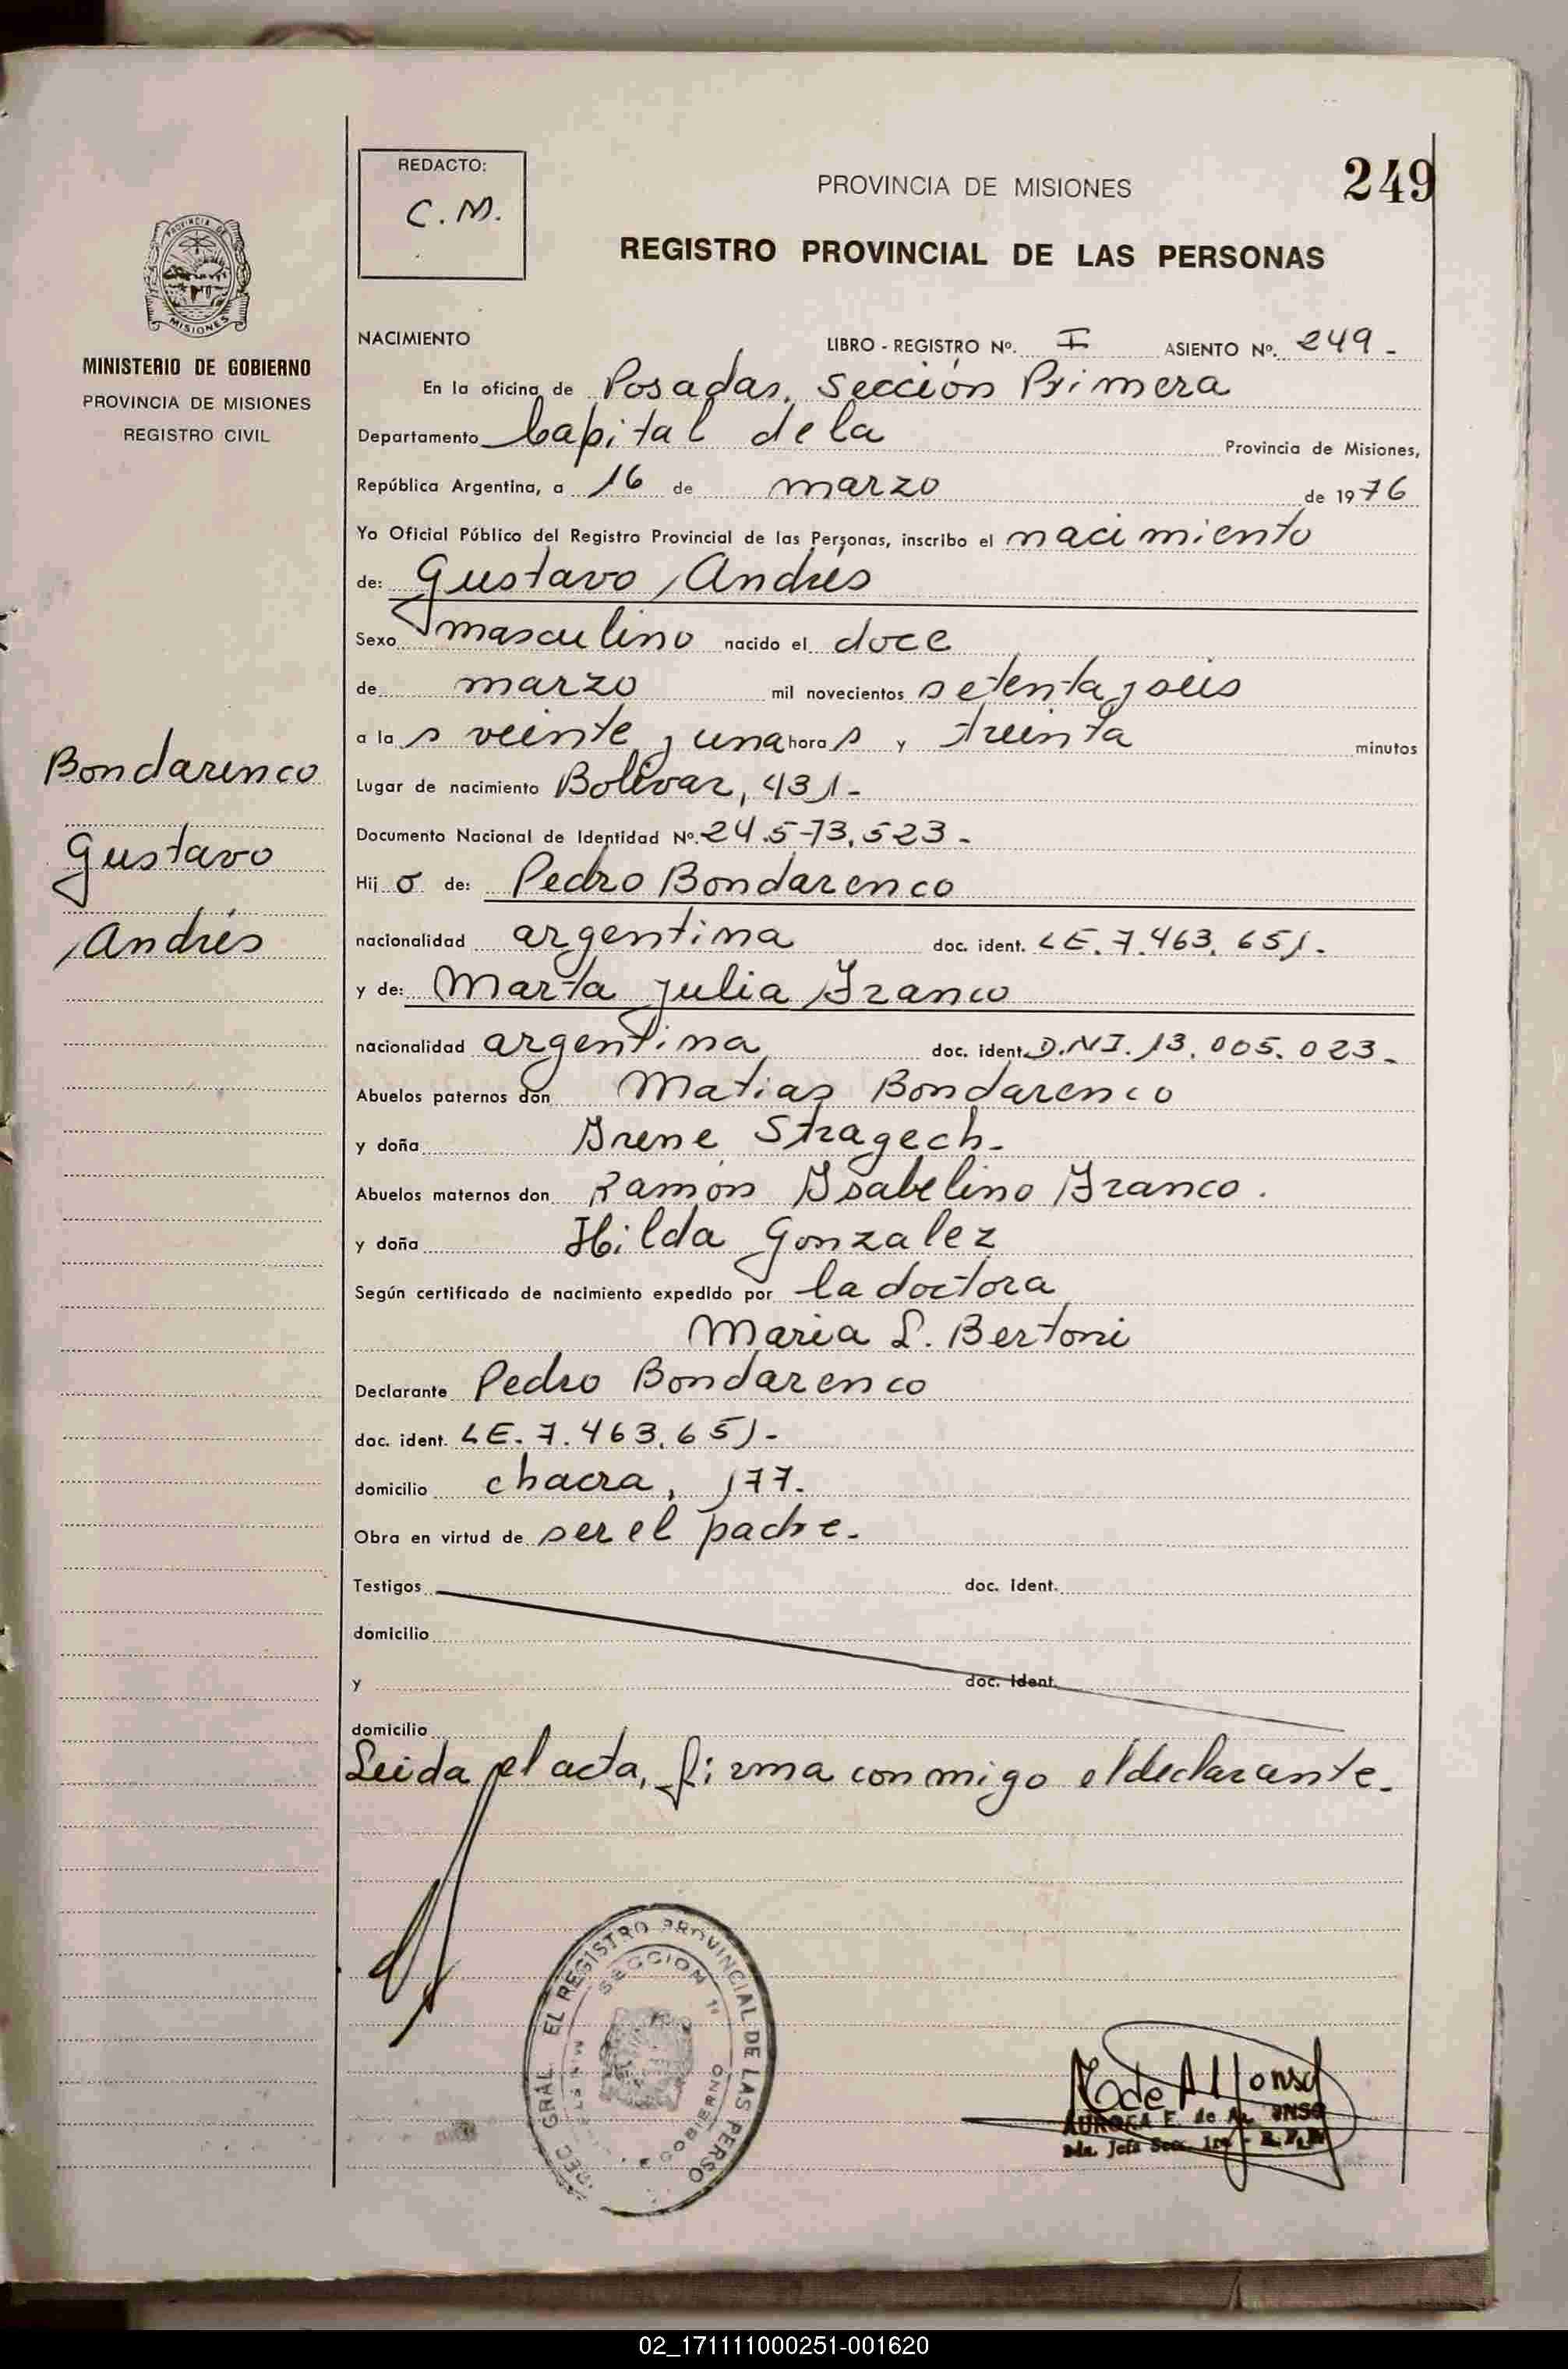 REDACTO:
C. M.
PROVINCIA DE MISIONES
249
REGISTRO PROVINCIAL DE LAS PERSONAS
PROVINCIA DE
MISIONES
MINISTERIO DE GOBIERNO
PROVINCIA DE MISIONES
REGISTRO CIVIL
Bondarenco
Gustavo
Andrés
NACIMIENTO LIBRO - REGISTRO Nº. I ASIENTO Nº. 249 -
En la oficina de Posadas, Sección Primera
Departamento Capital de la Provincia de Misiones,
República Argentina, a 16 de marzo de 1976
Yo Oficial Público del Registro Provincial de las Personas, inscribo el nacimiento
de: Gustavo Andrés
Sexo masculino nacido el doce
de marzo mil novecientos setenta y seis
a la s veinte y una hora s y treinta minutos
Lugar de nacimiento Bolívar, 431 -
Documento Nacional de Identidad Nº. 24.573.523 -
Hij o de: Pedro Bondarenco
nacionalidad argentina doc. ident. LE. 7.463.651.-
y de: Marta Julia Franco
nacionalidad argentina doc. ident. D.N.I. 13.005.023 -
Abuelos paternos don Matias Bondarenco
y doña Irene Stragech -
Abuelos maternos don Ramón Isabelino Franco .
y doña Hilda Gonzalez
Según certificado de nacimiento expedido por la doctora
Maria L. Bertoni
Declarante Pedro Bondarenco
doc. ident. LE. 7.463.651 -
domicilio chacra, 177.
Obra en virtud de ser el padre.
Testigos doc. Ident.
domicilio
y doc. Ident.
domicilio
Leida el acta, firma conmigo el declarante.
EL REGISTRO PROVINCIAL DE LAS PERSO
SECCION 1º
GOBIERNO
GRAL.
de Alfonso
AURORA F. de AL ONSO
02_171111000251-001620